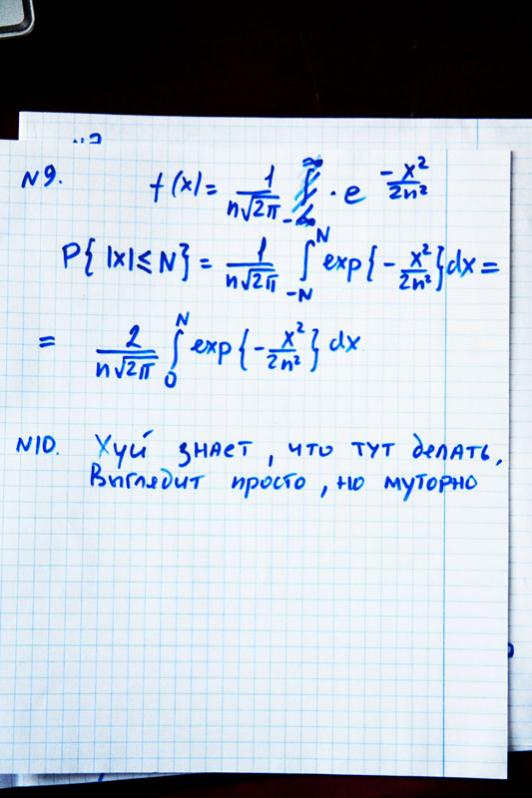 N9. f(x) = 1/(n√2π) · e^(-x²/2n²)
P{|x|≤N} = 1/(n√2π) ∫_{-N}^{N} exp{-x²/2n²}dx =
= 2/(n√2π) ∫_0^N exp{-x²/2n²} dx
N10. Хуй знает, что тут делать,
Выглядит просто, но муторно